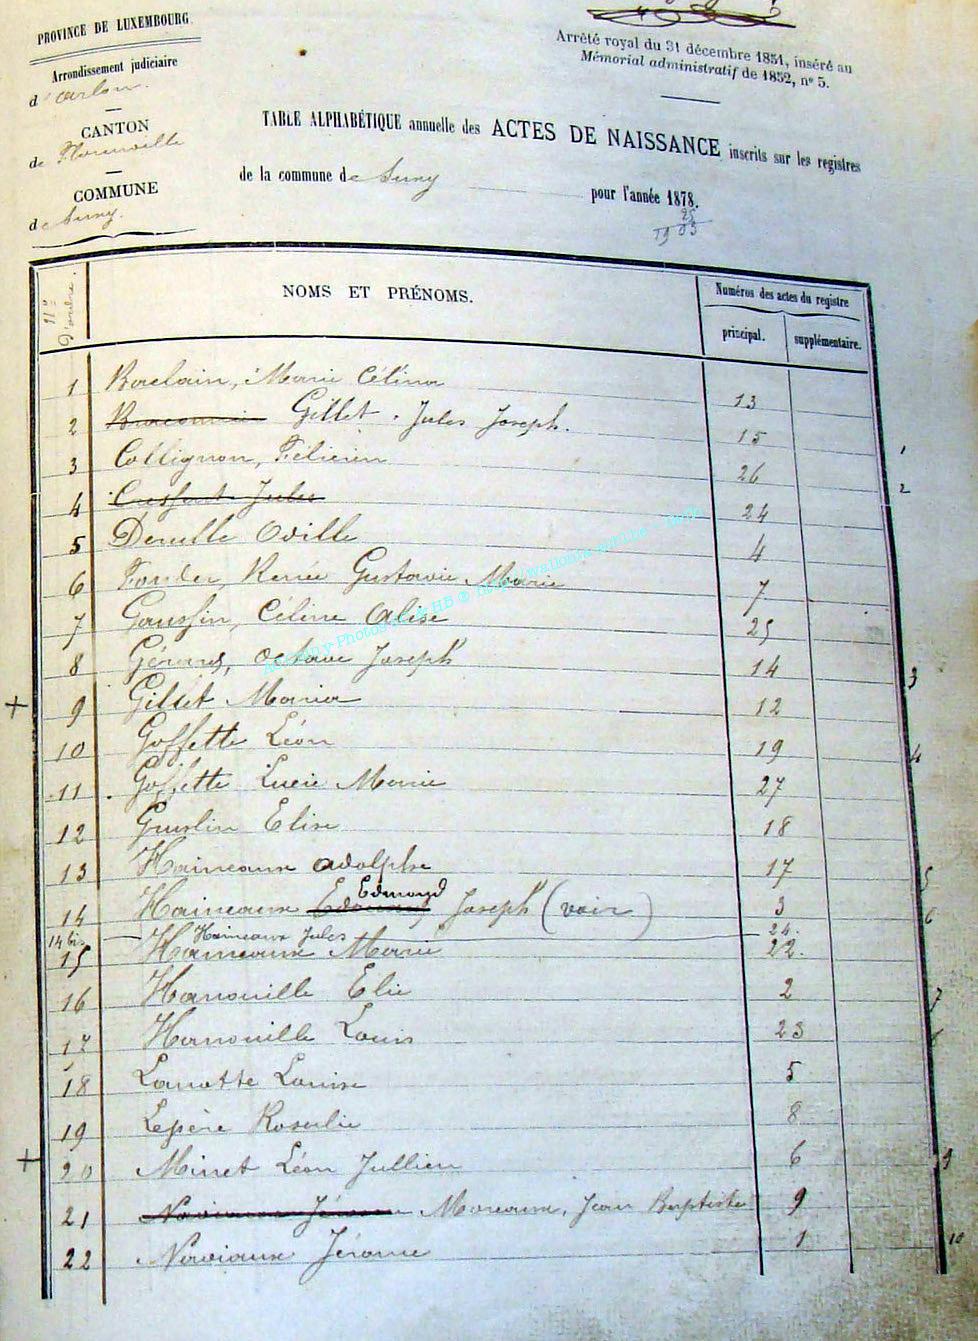 PROVINCE DE LUXEMBOURG.
Arrondissement judiciaire
d'Arlon.
CANTON
de Florenville
COMMUNE
de Suxy.
Arrêté royal du 31 décembre 1851, inséré au
Mémorial administratif de 1852, nº 5.
TABLE ALPHABÉTIQUE annuelle des ACTES DE NAISSANCE inscrits sur les registres
de la commune de Suxy pour l'année 1878.
25
1903
Nº d'ordre. NOMS ET PRÉNOMS. Numéros des actes du registre
principal. supplémentaire.
1 Baclain, Marie Célina 13
2 Gillet Jules Joseph. 15
3 Collignon, Félicien 26
4 Jules 24
5 Derulle Odille 4
6 Fonder Renée Gustavie Marie 7
7 Gaussin, Céline Alise 25
8 Gérard, Octave Joseph 14
9 Gillet Maria 12
10 Goffette Léon 19
11 Goffette Lucie Marie 27
12 Guerlin Elise 18
13 Haineaux Adolphe 17
14 Haineaux Edmond Joseph (voir) 3
14 bis Haineaux Jules 24.
15 Haineaux Marie 22.
16 Hanouille Elie 2
17 Hanouille Louis 23
18 Lanotte Louise 5
19 Lepère Rosalie 8
20 Minet Léon Jullien 6
21 Moreaux, Jean Baptiste 9
22 Noviaux Jérome 1